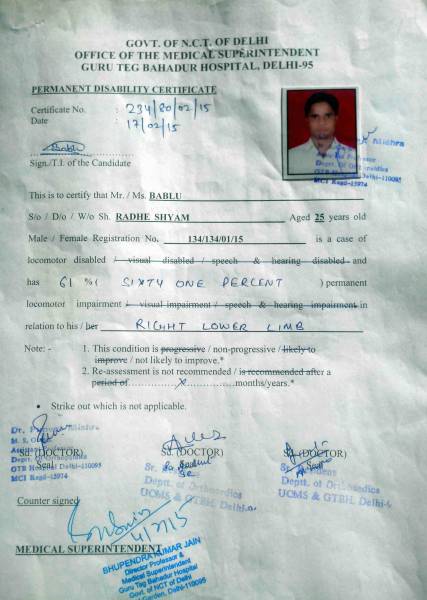 GOVT. OF N.C.T. OF DELHI
OFFICE OF THE MEDICAL SUPERINTENDENT
GURU TEG BAHADUR HOSPITAL, DELHI-95
PERMANENT DISABILITY CERTIFICATE
Certificate No. : 234/80/02/15
Date : 17/02/15
Bablu
Sign./T.I. of the Candidate
Mishra
Professor
Deptt. of Orthopaedics
GTB Delhi-110095
MCI Regd-15974
This is to certify that Mr. / Ms. BABLU
S/o / D/o / W/o Sh. RADHE SHYAM Aged 25 years old
Male / Female Registration No. 134/134/01/15 is a case of
locomotor disabled / visual disabled / speech & hearing disabled and
has 61 % ( SIXTY ONE PERCENT ) permanent
locomotor impairment / visual impairment / speech & hearing impairment in
relation to his / her RIGHT LOWER LIMB
Note: - 1. This condition is progressive / non-progressive / likely to
improve / not likely to improve.*
2. Re-assessment is not recommended / is recommended after a
period of ..............x..............months/years.*
• Strike out which is not applicable.
Dr. Mishra
M. S.
Deptt. of Orthopaedics
GTB Hospital Delhi-110095
MCI Regd-15974
Sd/(DOCTOR) Sd/(DOCTOR) Sd/(DOCTOR)
Seal Seal Seal
Deptt. of Orthopaedics
UCMS & GTBH, Delhi
Deptt. of Orthopaedics
UCMS & GTBH, Delhi
Counter signed
4/7/15
MEDICAL SUPERINTENDENT
BHUPENDRA KUMAR JAIN
Director Professor &
Medical Superintendent
Guru Teg Bahadur Hospital
Govt. of NCT of Delhi
Garden, Delhi-110095